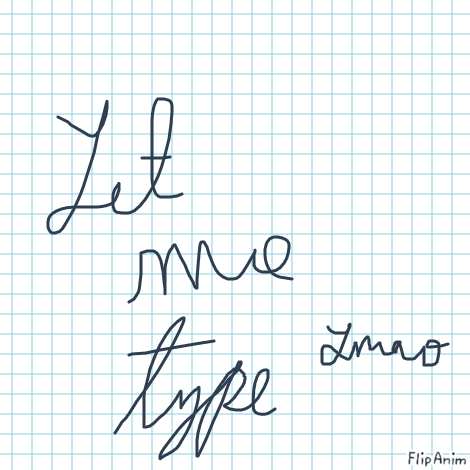 Let
me
type
Lmao
FlipAnim